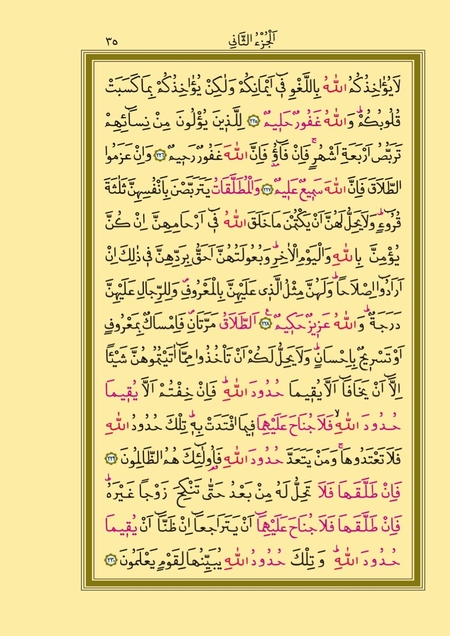 اَلْجُزْءُ الثَّانِي ٣٥
لَا يُؤَاخِذُكُمُ اللّٰهُ بِاللَّغْوِ فٓي اَيْمَانِكُمْ وَلٰكِنْ يُؤَاخِذُكُمْ بِمَا كَسَبَتْ
قُلُوبُكُمْۜ وَاللّٰهُ غَفُورٌ حَلٖيمٌ ﴿٢٢٥﴾ لِلَّذٖينَ يُؤْلُونَ مِنْ نِسَٓائِهِمْ
تَرَبُّصُ اَرْبَعَةِ اَشْهُرٍۚ فَاِنْ فَٓاؤُ۫ فَاِنَّ اللّٰهَ غَفُورٌ رَحٖيمٌ ﴿٢٢٦﴾ وَاِنْ عَزَمُوا
الطَّلَاقَ فَاِنَّ اللّٰهَ سَمٖيعٌ عَلٖيمٌ ﴿٢٢٧﴾ وَالْمُطَلَّقَاتُ يَتَرَبَّصْنَ بِاَنْفُسِهِنَّ ثَلٰثَةَ
قُرُٓوءٍۜ وَلَا يَحِلُّ لَهُنَّ اَنْ يَكْتُمْنَ مَا خَلَقَ اللّٰهُ فٓي اَرْحَامِهِنَّ اِنْ كُنَّ
يُؤْمِنَّ بِاللّٰهِ وَالْيَوْمِ الْاٰخِرِۜ وَبُعُولَتُهُنَّ اَحَقُّ بِرَدِّهِنَّ فٖي ذٰلِكَ اِنْ
اَرَادُٓوا اِصْلَاحاًۜ وَلَهُنَّ مِثْلُ الَّذٖي عَلَيْهِنَّ بِالْمَعْرُوفِۖ وَلِلرِّجَالِ عَلَيْهِنَّ
دَرَجَةٌۜ وَاللّٰهُ عَزٖيزٌ حَكٖيمٌ ﴿٢٢٨﴾ اَلطَّلَاقُ مَرَّتَانِۖ فَاِمْسَاكٌ بِمَعْرُوفٍ
اَوْ تَسْرٖيحٌ بِاِحْسَانٍۜ وَلَا يَحِلُّ لَكُمْ اَنْ تَأْخُذُوا مِمَّٓا اٰتَيْتُمُوهُنَّ شَيْـٔاً
اِلَّٓا اَنْ يَخَافَٓا اَلَّا يُقٖيمَا حُدُودَ اللّٰهِۜ فَاِنْ خِفْتُمْ اَلَّا يُقٖيمَا
حُدُودَ اللّٰهِۙ فَلَا جُنَاحَ عَلَيْهِمَا فٖيمَا افْتَدَتْ بِهٖۜ تِلْكَ حُدُودُ اللّٰهِ
فَلَا تَعْتَدُوهَاۚ وَمَنْ يَتَعَدَّ حُدُودَ اللّٰهِ فَاُو۬لٰٓئِكَ هُمُ الظَّالِمُونَ ﴿٢٢٩﴾
فَاِنْ طَلَّقَهَا فَلَا تَحِلُّ لَهُ مِنْ بَعْدُ حَتّٰى تَنْكِحَ زَوْجاً غَيْرَهُۜ
فَاِنْ طَلَّقَهَا فَلَا جُنَاحَ عَلَيْهِمَٓا اَنْ يَتَرَاجَعَٓا اِنْ ظَنَّٓا اَنْ يُقٖيمَا
حُدُودَ اللّٰهِۜ وَتِلْكَ حُدُودُ اللّٰهِ يُبَيِّنُهَا لِقَوْمٍ يَعْلَمُونَ ﴿٢٣٠﴾